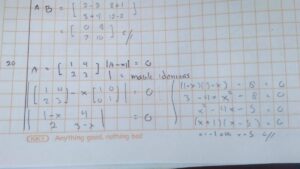 A B = [ 2-2 8+1
3+4 12-2 ]
= [ 0 9
7 10 ] c//
20 A = [ 1 4
2 3 ] |A-xI| = 0
I = matrik identitas
| [ 1 4
2 3 ] - x [ 1 0
0 1 ] | = 0
| 1-x 4
2 3-x | = 0
(1-x)(3-x) - 8 = 0
3 - 4x x² - 8 = 0
x² - 4x - 5 = 0
(x+1)(x-5) = 0
x = -1 x = 5 c//
Anything good, nothing bad